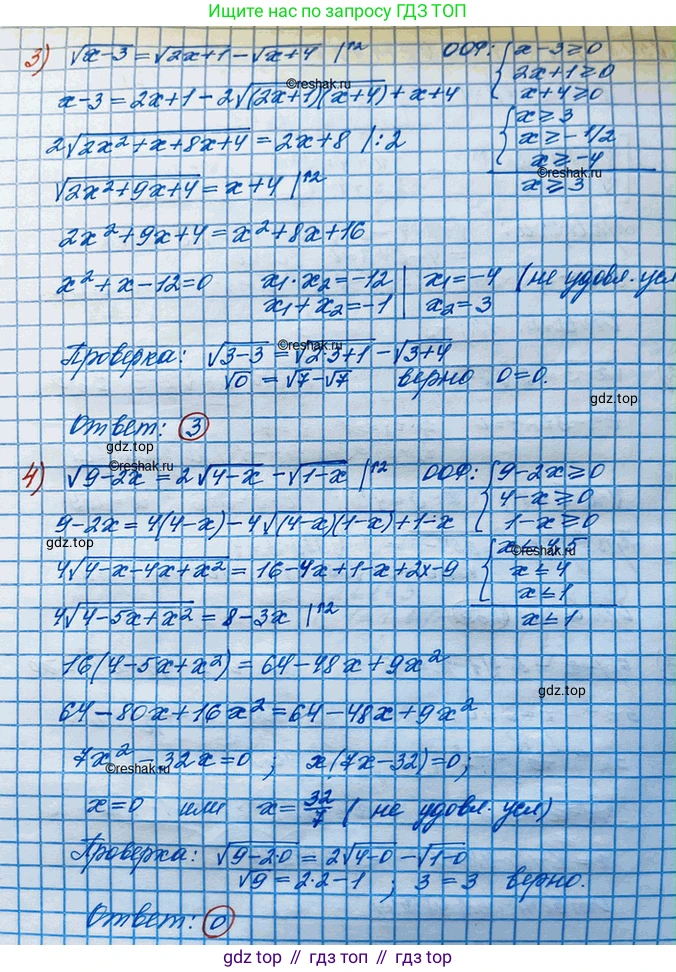 Ищите нас по запросу ГДЗ ТОП
3) √x-3 = √2x+1 - √x+4 |↑2 ООФ: { x-3≥0
2x+1≥0
x+4≥0
©reshak.ru
x-3 = 2x+1 - 2√(2x+1)(x+4) + x+4
2√2x²+x+8x+4 = 2x+8 |:2
{ x≥3
x≥-1/2
x≥-4
©reshak.ru
x≥3
√2x²+9x+4 = x+4 |↑2
2x²+9x+4 = x²+8x+16
x²+x-12=0 x₁·x₂=-12 | x₁=-4 (не удовл. усл
x₁+x₂=-1 | x₂=3
©reshak.ru
Проверка: √3-3 = √2·3+1 - √3+4
√0 = √7-√7 верно 0=0.
gdz.top
Ответ: 3
gdz.top
©reshak.ru
4) √9-2x = 2√4-x - √1-x |↑2 ООФ: { 9-2x≥0
4-x≥0
1-x≥0
9-2x = 4(4-x) - 4√(4-x)(1-x) + 1-x
gdz.top
{ x≤4,5
©reshak.ru
x≤4
x≤1
x≤1
4√4-x-4x+x² = 16-4x+1-x+2x-9
4√4-5x+x² = 8-3x |↑2
16(4-5x+x²) = 64-48x+9x²
gdz.top
64-80x+16x² = 64-48x+9x²
7x²-32x=0 ; x(7x-32)=0;
©reshak.ru
x=0 или x=32/7 (не удовл. усл)
Проверка: √9-2·0 = 2√4-0 - √1-0
√9 = 2·2-1 ; 3=3 верно.
Ответ: 0
gdz.top // гдз топ // gdz.top